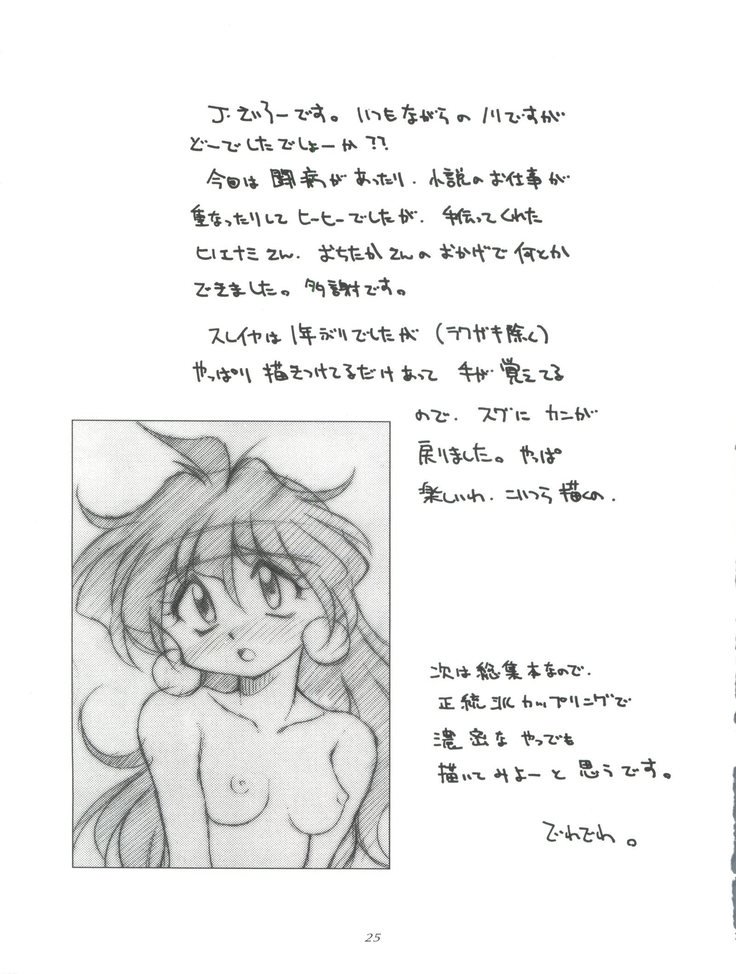 J・さいろーです。いつもながらのノリですが
どーでしたでしょーか??
今回は闘病があったり、小説のお仕事が
重なったりしてヒーヒーでしたが、手伝ってくれた
ヒノエナミさん、おちたかさんのおかげで何とか
できました。多謝です。
スレイヤは1年ぶりでしたが(ラクガキ除く)
やっぱり描きつけてるだけあって手が覚えてる
ので、スグにカンが
戻りました。やっぱ
楽しいわ、こいつら描くの、
次は総集本なので、
正統派カップリングで
濃密なやつでも
描いてみよーと思うです。
でわでわ。
25